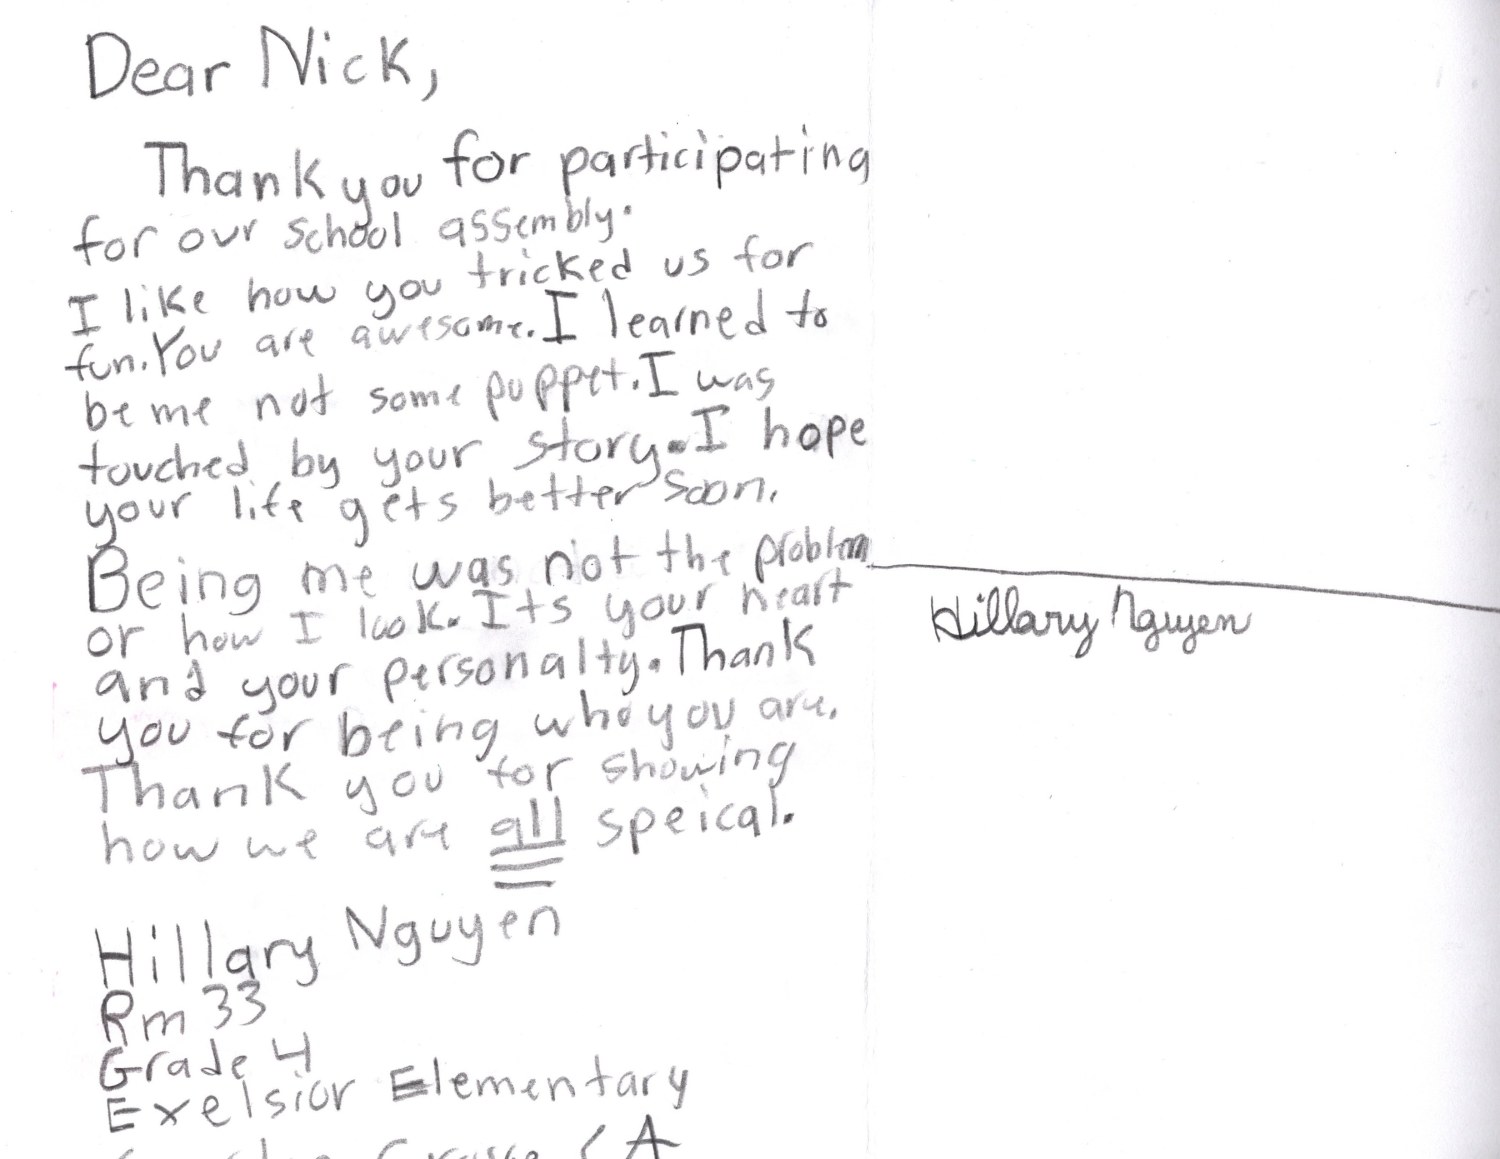 Dear Nick,
Thank you for participating
for our school assembly.
I like how you tricked us for
fun. You are awesome. I learned to
be me not some puppet. I was
touched by your story. I hope
your life gets better soon.
Being me was not the problem
or how I look. Its your heart
and your personalty. Thank
you for being who you are.
Thank you for showing
how we are all speical.
Hillary Nguyen
Rm 33
Grade 4
Exelsior Elementary
CA
Hillary Nguyen